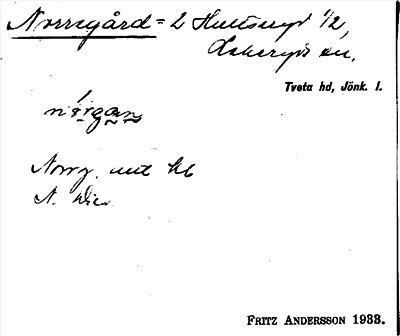 Norregård = 2 Hultseryd 1/2,
Lekeryds sn.
Tveta hd, Jönk. l.
nórgan
Norrg. utt kb
N. Dier
FRITZ ANDERSSON 1933.